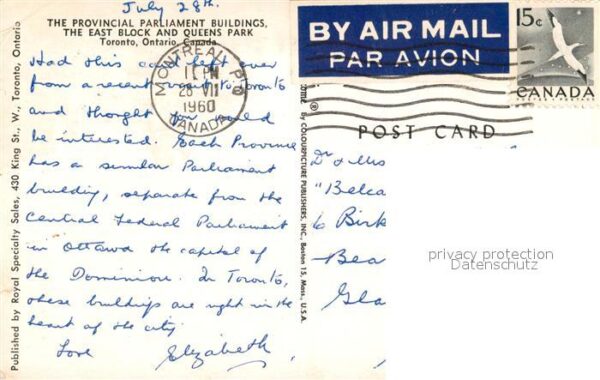 July 28th.
THE PROVINCIAL PARLIAMENT BUILDINGS,
THE EAST BLOCK AND QUEENS PARK
Toronto, Ontario, Canada
Had this card left over
from a recent visit to Toronto
and thought you would
be interested. Each Province
has a similar Parliament
building, separate from the
Central Federal Parliament
in Ottawa the capital of
the Dominion. In Toronto,
these buildings are right in the
heart of the city
Love Elizabeth
Published by Royal Specialty Sales, 430 King St., W., Toronto, Ontario
MONTREAL P Q
11 PM
28 VII
1960
CANADA
BY AIR MAIL
PAR AVION
15¢
CANADA
POST CARD
BY COLOURPICTURE PUBLISHERS, INC., Boston 15, Mass., U.S.A.
Dr & Mrs
"Belca
6 Birk
Bea
Gla
privacy protection
Datenschutz